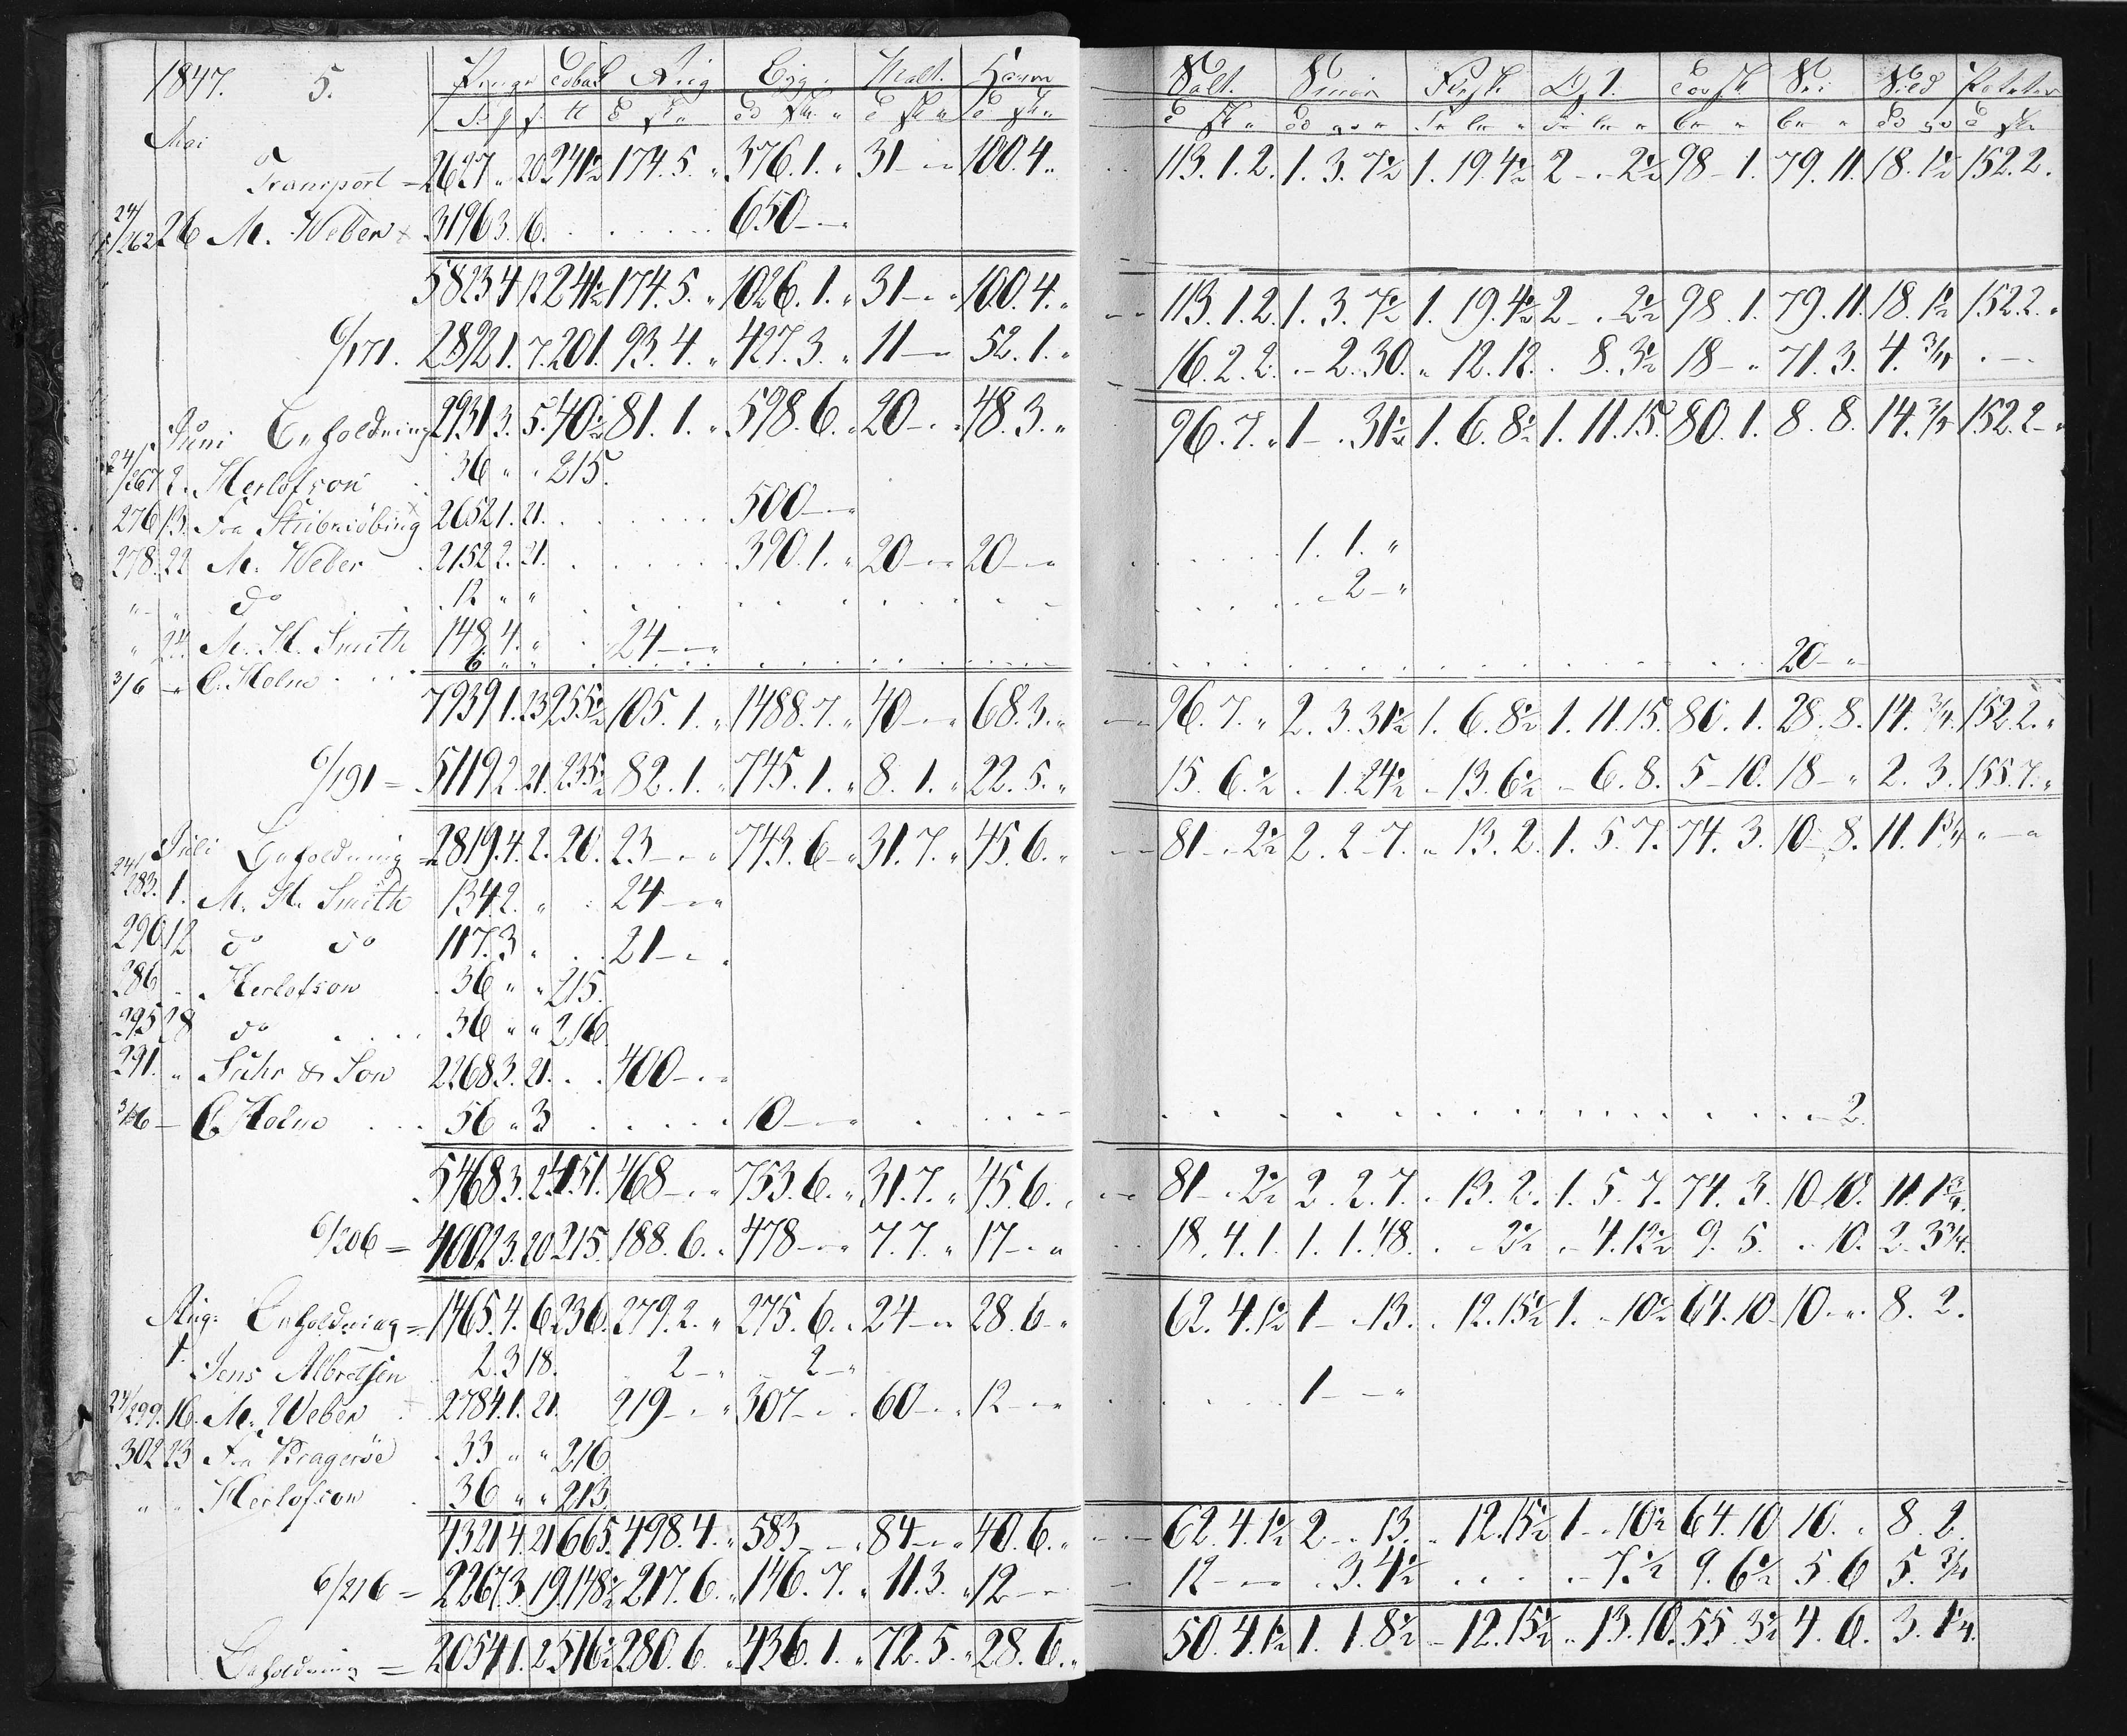 1847. 5. Penge Tobak Rug Byg. Malt. Havre
Mai
Transport = 2627 „ 20 241½ 174. 5. „ 376. 1. „ 31 — „ 100. 4. „
24/262 26 M. Weber 3196 3. 16. 650 — „
5823 4 12 241½ 174. 5. „ 1026. 1. „ 31 — „ 100. 4. „
6/171. 2892 1. 7. 201. 93. 4. „ 427. 3. „ 11 — „ 52. 1. „
Juni Beholdning 2931 3. 5. 40½ 81. 1. „ 598. 6. „ 20 — „ 48. 3. „
24/267 2. Herlofson 36 „ „ 215.
276 13. Fra Stubkiöbing 2652 1. 21. 500 — „
278. 22 M. Weber 2152 2. 21. 390. 1. „ 20 — „ 20 — „
„ „ do 12 „ „
„ 24. M. H. Smith 148 4. „ 24 — „
3/6 — C. Holm 6 „ „
7939 1. 23 255½ 105. 1. „ 1488. 7. „ 40 — „ 68. 3. „
6/191 = 5119 2. 21. 235½ 82. 1. „ 745. 1. „ 8. 1. „ 22. 5. „
Juli Beholdning = 2819. 4. 2. 20. 23 — „ 743. 6 — „ 31. 7. „ 45. 6. „
24/283. 1. M. H. Smith 134 2. „ 24 — „
290 12 do do 117. 3 „ 21 — „
286 „ Herlofson 36 „ „ 215.
295 28 do 36 „ „ 216.
291. „ Suhr & Son 2268 3. 21. 400 — „
3/6 — C. Holm 56 „ 3 10 — „
5468 3. 2. 451. 468 — „ 753. 6. „ 31. 7. „ 45. 6. „
6/206 = 4002 3. 20 215. 188. 6. „ 478 — „ 7. 7. „ 17 — „
Aug: Beholdning = 1465. 4. 6 236. 279. 2. „ 275. 6. „ 24 — „ 28. 6 „
1. Jens Albretsen 2. 3 18. 2 — „ 2 — „
24/299. 16. M. Weber 2784. 1. 21. 219 — „ 307 — „ 60 — „ 12 — „
302 23 Fra Kragerøe 33 „ „ 216
„ „ Herlofson 36 „ „ 213.
4321 4. 21 665. 498. 4. „ 583 — „ 84 — „ 40. 6. „
6/216 = 2267. 3. 19. 148½ 217. 6. „ 146. 7. „ 11. 3. „ 12 — „
Beholdning = 2054 1. 2 516½ 280. 6. „ 436. 1. „ 72. 5. „ 28. 6. „
Salt. Smör Flesk Ost. Torsk Sei Sild Poteter
113. 1. 2. 1. 3. 7½ 1. 19. 4½ 2 — „ 2½ 98 — 1. 79. 11. 18. 1½ 152. 2.
113. 1. 2. 1. 3. 7½ 1. 19. 4½ 2 — „ 2½ 98. 1. 79. 11. 18. 1½ 152. 2. „
16. 2. 2. „ 2. 30. „ 12. 12. „ 8. 3½ 18 — „ 71. 3. 4. ¾ „ —
96. 7. „ 1 — „ 31½ 1. 6. 8½ 1. 11. 15. 80. 1. 8. 8. 14. ¾ 152. 2 — „
1. 1. „
2 — „
20 — „
96. 7. „ 2. 3. 31½ 1. 6. 8½ 1. 11. 15. 80. 1. 28. 8. 14. ¾. 152. 2. „
15. 6. ½ „ 1. 24½ — 13. 6½ — 6. 8. 5 — 10. 18 — „ 2. 3. 155. 7. „
81 — „ 2½ 2. 2 — 7. „ 13. 2. 1. 5. 7. 74. 3. 10 — 8. 11. 1¾ „ — „
2.
81 — „ 2½ 2. 2. 7. „ 13. 2. 1. 5. 7. 74. 3. 10. 10. 11. 1¾.
18. 4. 1. 1. 1. 48. „ — 2½ „ 4. 12½ 9. 5. „ 10. 2. 3¼.
62. 4. 1½ 1 — „ 13. „ 12. 15½ 1. „ 10½ 64. 10 10 „ „ 8. 2.
1 — „
62. 4. 1½ 2 „ 13. „ 12. 15½ 1 — „ 10½ 64. 10 10. „ 8. 2.
12 — „ „ 3. 4½ „ 7. ½ 9. 6½ 5. 6 5. ¾
50. 4. 1½ 1. 1. 8½ — 12. 15½ „ 13. 10. 55. 3½ 4. 6. 3. 1¼.